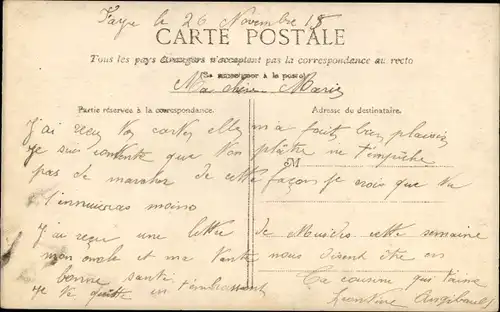 Faye le 26 Novembre 18
CARTE POSTALE
Tous les pays étrangers n'acceptent pas la correspondance au recto
(Se renseigner à la poste)
Ma chère Marie
Partie réservée à la correspondance.
Adresse du destinataire.
J'ai reçu tes cartes elle m'a faits bien plaisir
Je suis contente que ton plâtre ne t'empêche
M
pas de marcher de cette façons je crois que tu
t'ennuieras moins
J'ai reçu une lettre de cette semaine
mon oncle et ma tante nous disent être en
bonne santé. Ta cousine qui t'aime
Je te quitte en t'embrassant Léontine